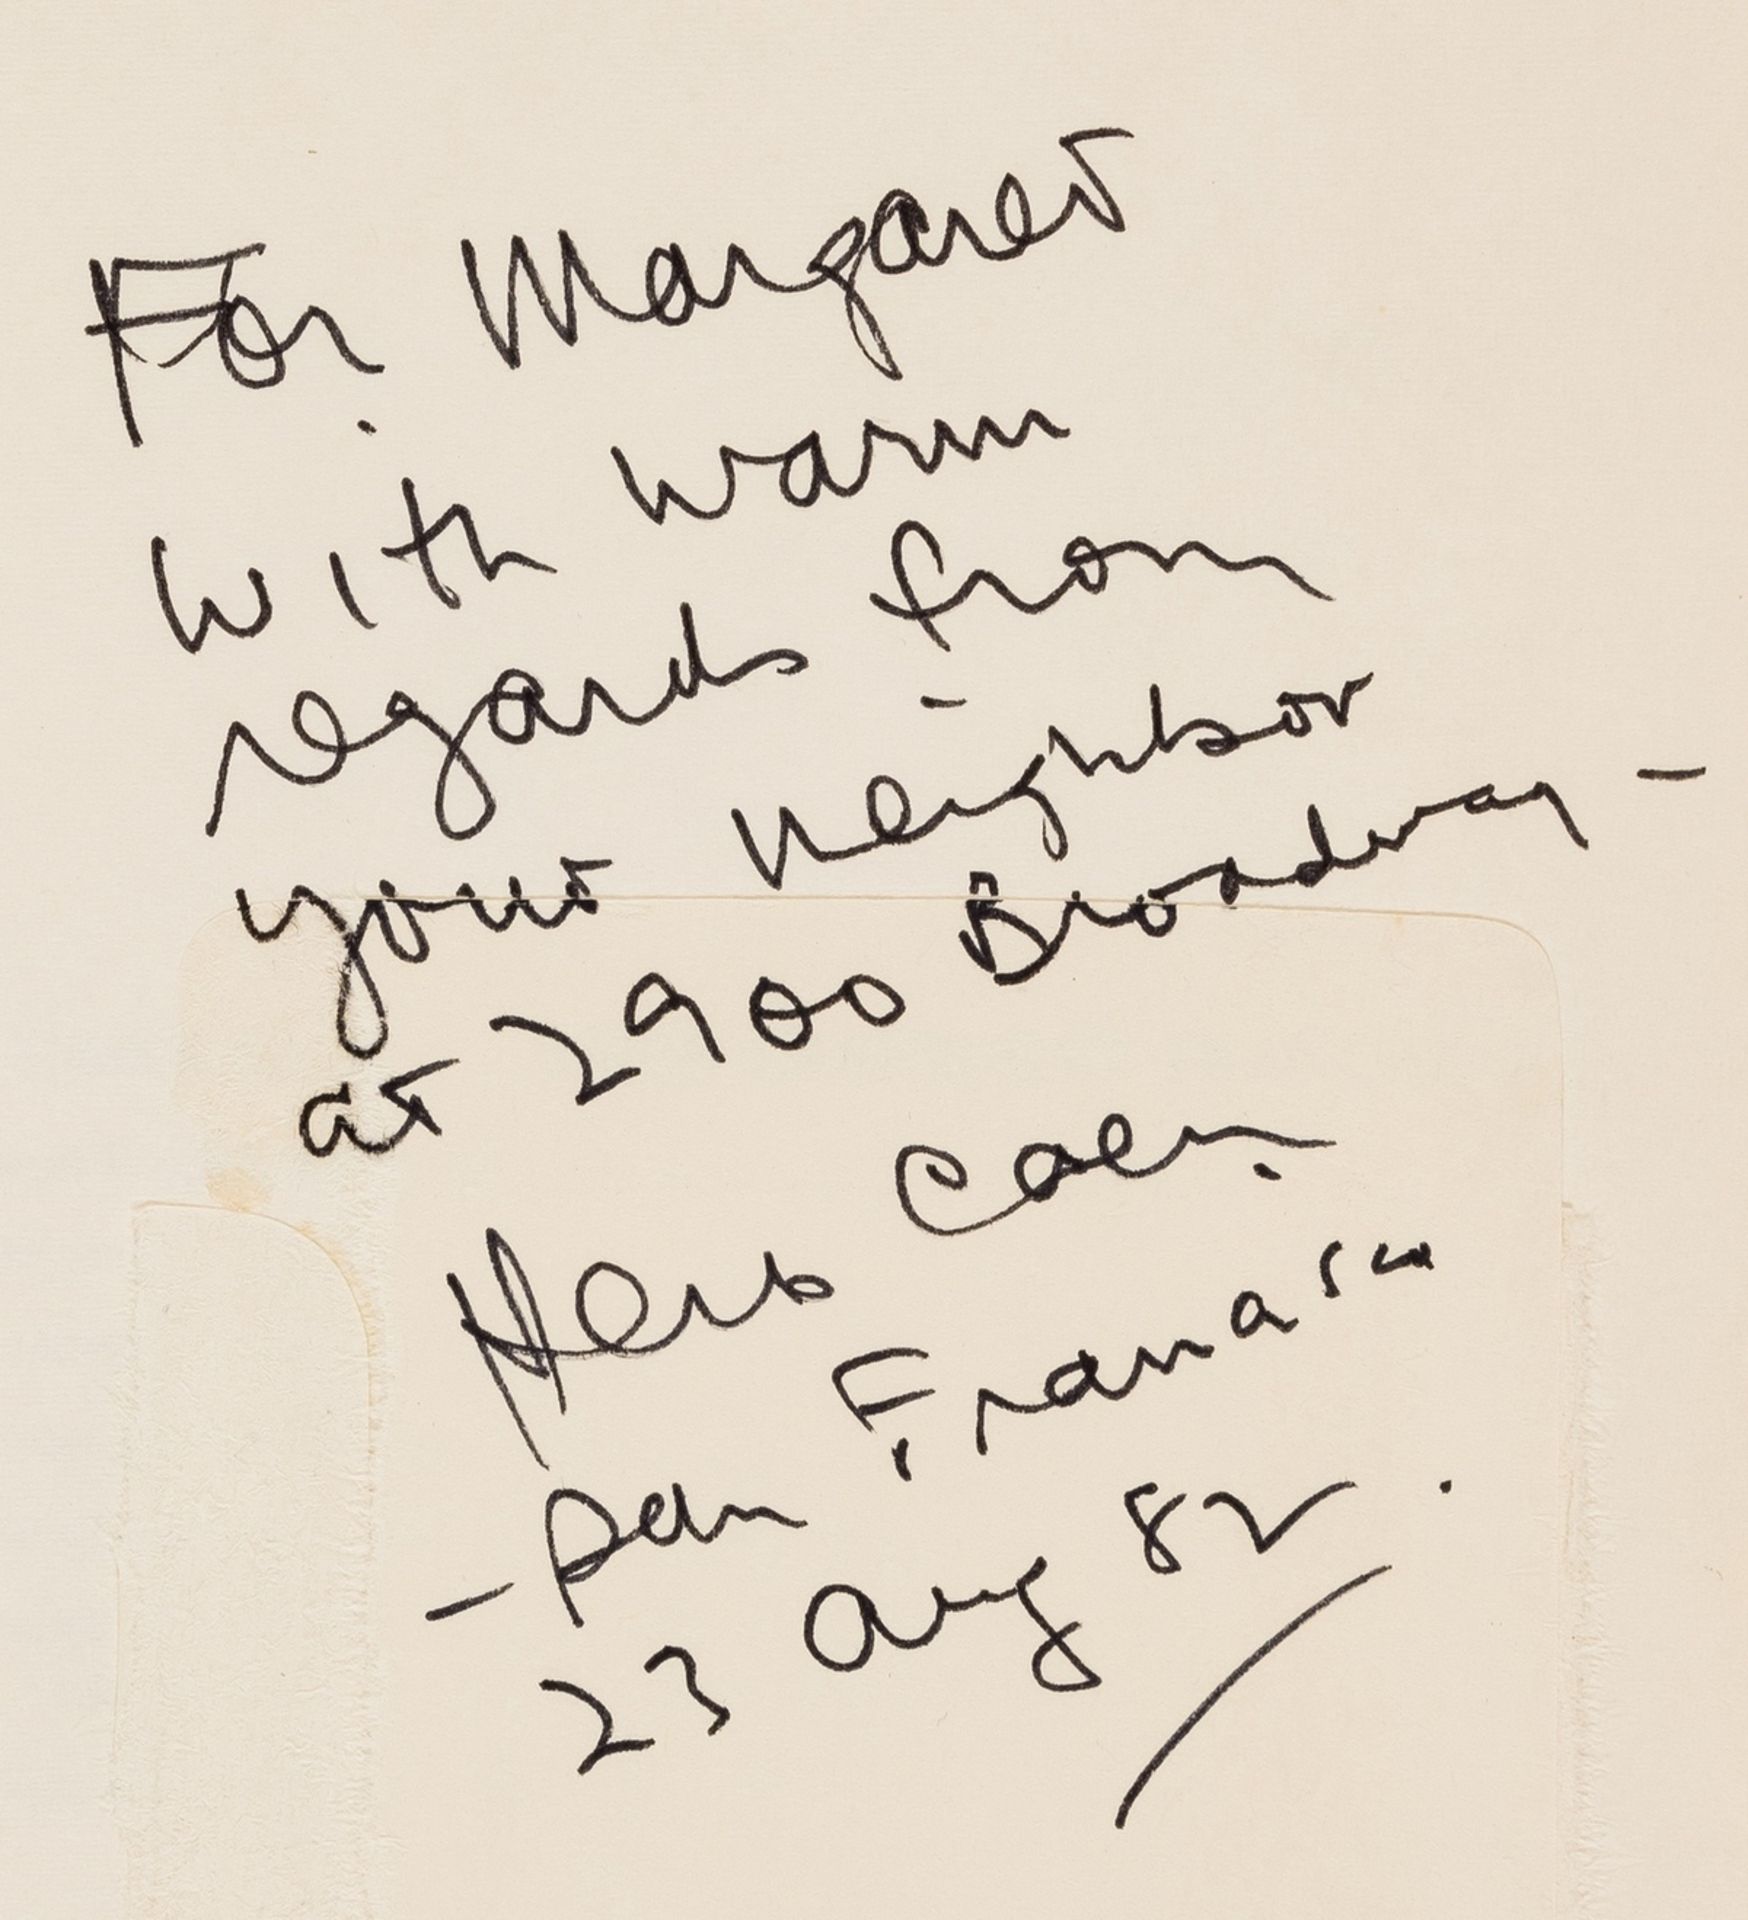 For Margaret
with warm
regards from
your neighbor
at 2900 Broadway –
Herb Caen
– San Francisco
23 Aug 82.